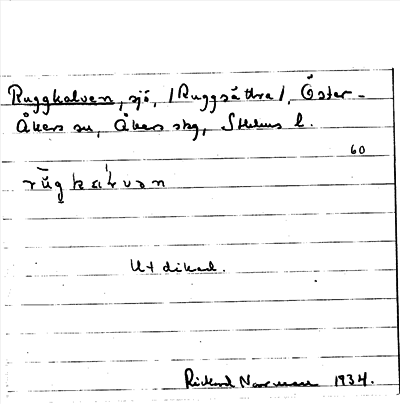 Ruggkalven, sjö, /Ruggsäthra/, Öster-
Åkers sn, Åkers skg, Sthlms l.
60
Utdikad.
Rickard 1934.